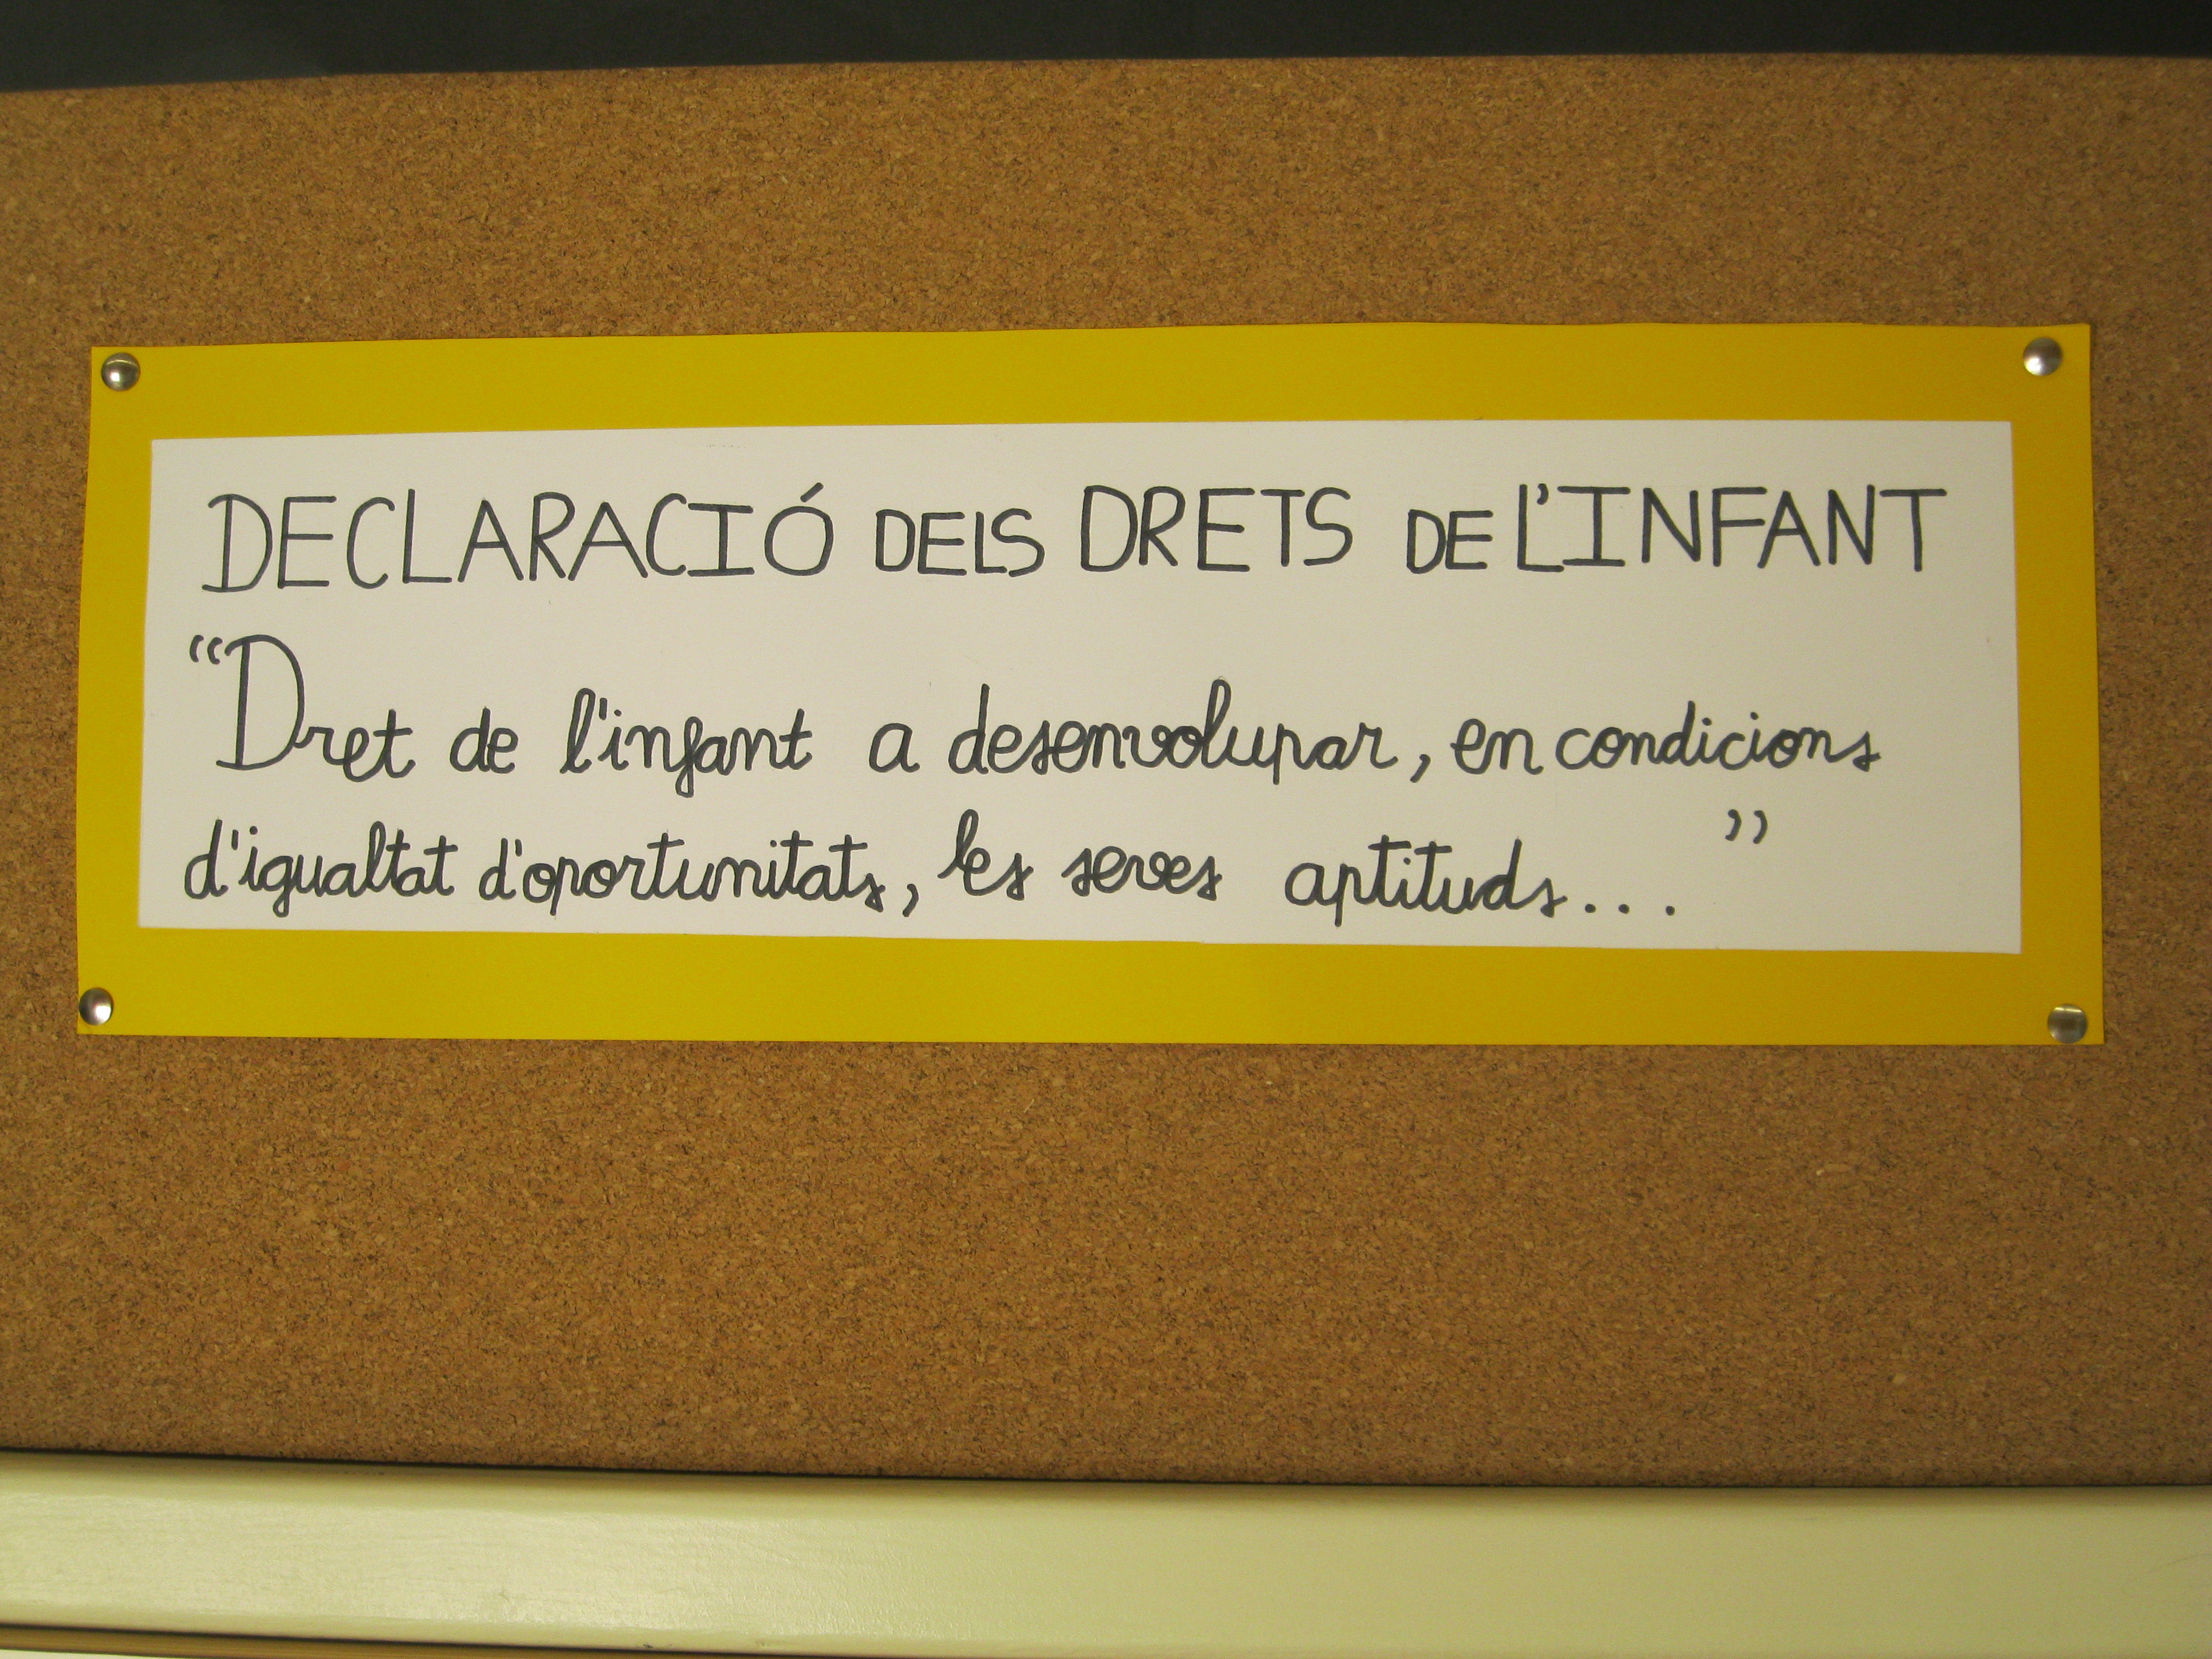 DECLARACIÓ DELS DRETS DE L'INFANT
“Dret de l'infant a desenvolupar, en condicions
d'igualtat d'oportunitats, les seves aptituds...”